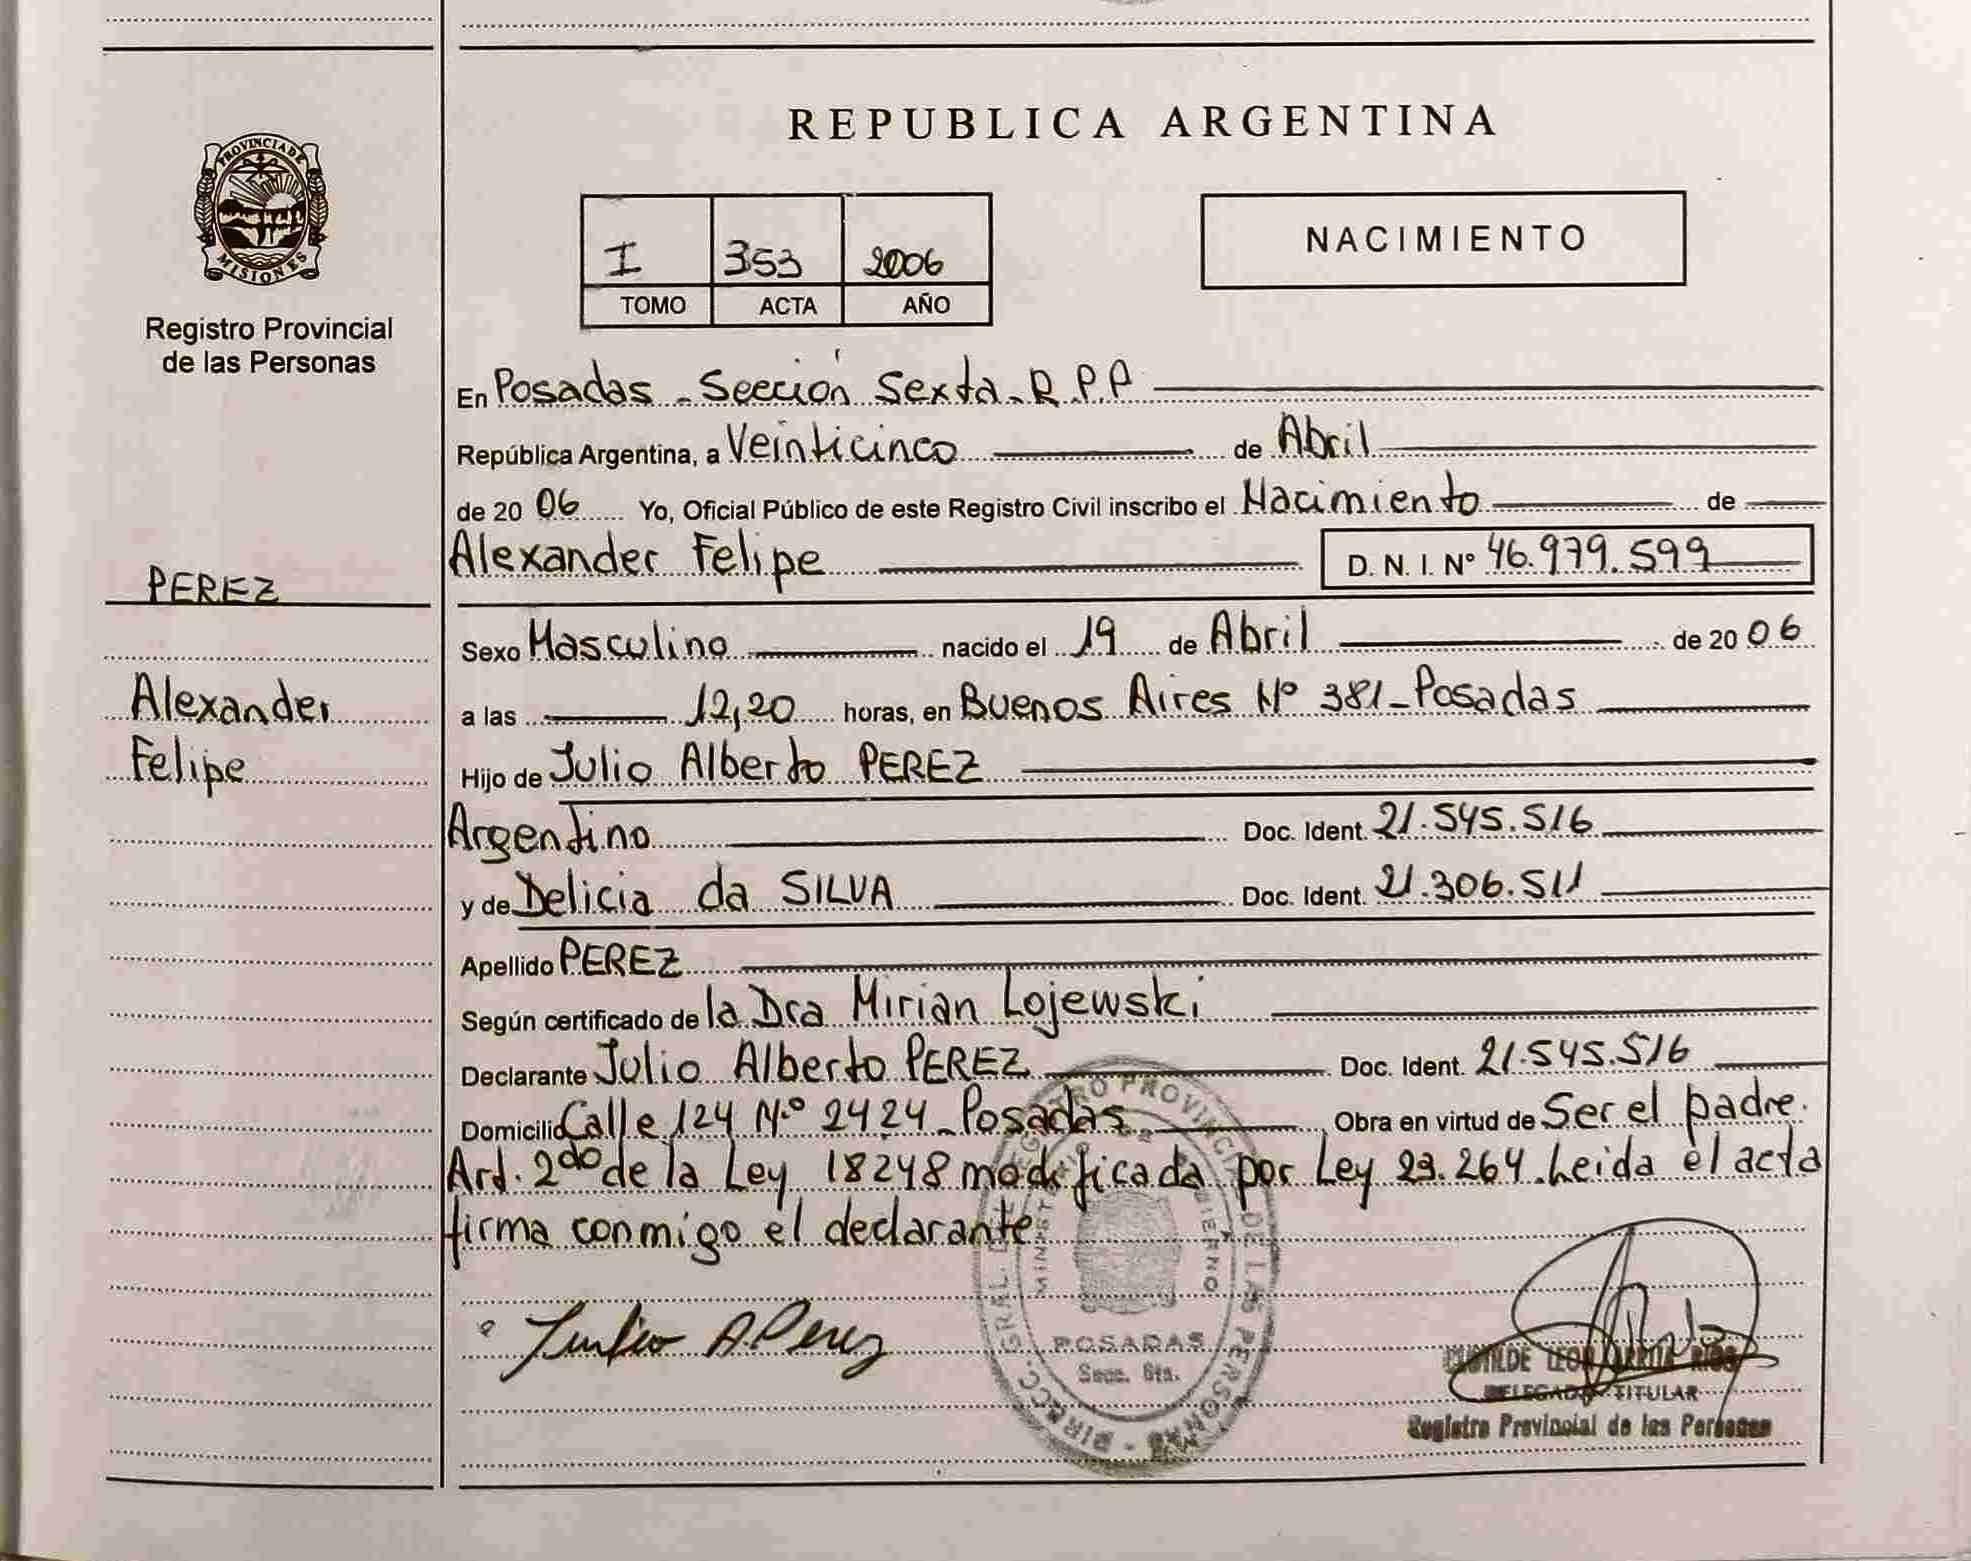 PROVINCIA DE
MISIONES
Registro Provincial
de las Personas
PEREZ
Alexander
Felipe
REPUBLICA ARGENTINA
I 353 2006
TOMO ACTA AÑO
NACIMIENTO
En Posadas - Sección Sexta - R.P.P
República Argentina, a Veinticinco de Abril
de 20 06 Yo, Oficial Público de este Registro Civil inscribo el Nacimiento de
Alexander Felipe D. N. I. Nº 46.979.599
Sexo Masculino nacido el 19 de Abril de 20 06
a las 12,20 horas, en Buenos Aires Nº 381 - Posadas
Hijo de Julio Alberto PEREZ
Argentino Doc. Ident. 21.545.516
y de Delicia da SILVA Doc. Ident. 21.306.511
Apellido PEREZ
Según certificado de la Dra Mirian Lojewski
Declarante Julio Alberto PEREZ Doc. Ident. 21.545.516
Domicilio Calle 124 N.º 2424 - Posadas Obra en virtud de Ser el padre.
Art. 2do de la Ley 18248 modificada por Ley 23.264. Leida el acta
firma conmigo el declarante
Julio A. Perez
POSADAS
Secc. 6ta.
DELEGADO TITULAR
Registro Provincial de las Personas